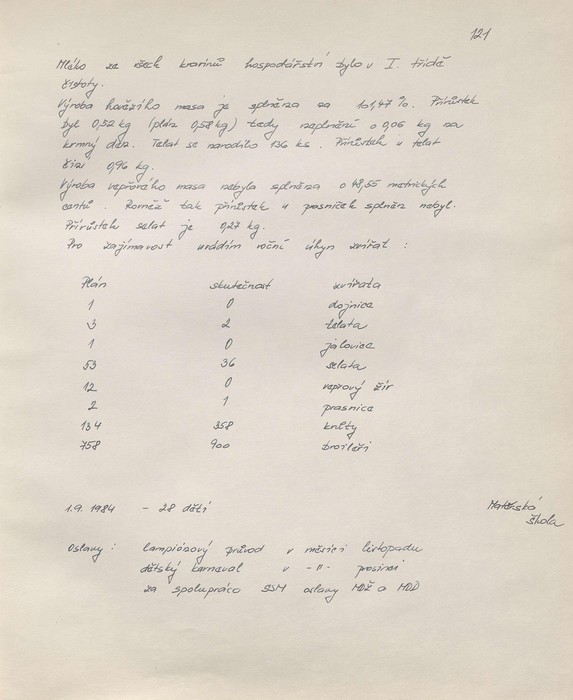 121
Mléko ze všech kravínů hospodářství bylo v I. třídě
čistoty.
Výroba hovězího masa je splněna na 101,47 %. Přírůstek
byl 0,52 kg (plán 0,58 kg) tedy nesplnění o 0,06 kg na
krmný den. Telat se narodilo 136 ks. Přírůstek u telat
činí 0,96 kg.
Výroba vepřového masa nebyla splněna o 48,55 metrických
centů. Rovněž tak přírůstek u prasniček splněn nebyl.
Přírůstek selat je 0,27 kg.
Pro zajímavost uvádím roční úhyn zvířat :
Plán skutečnost zvířata
1 0 dojnice
3 2 telata
1 0 jalovice
53 36 selata
12 0 vepřový žír
2 1 prasnice
134 358 kuřity
758 900 brojleři
1.9.1984 - 28 dětí
Mateřská
škola
Oslavy : lampiónový průvod v měsíci listopadu
dětský karneval v -"- prosinci
za spolupráce SSM oslavy MDŽ a MDD